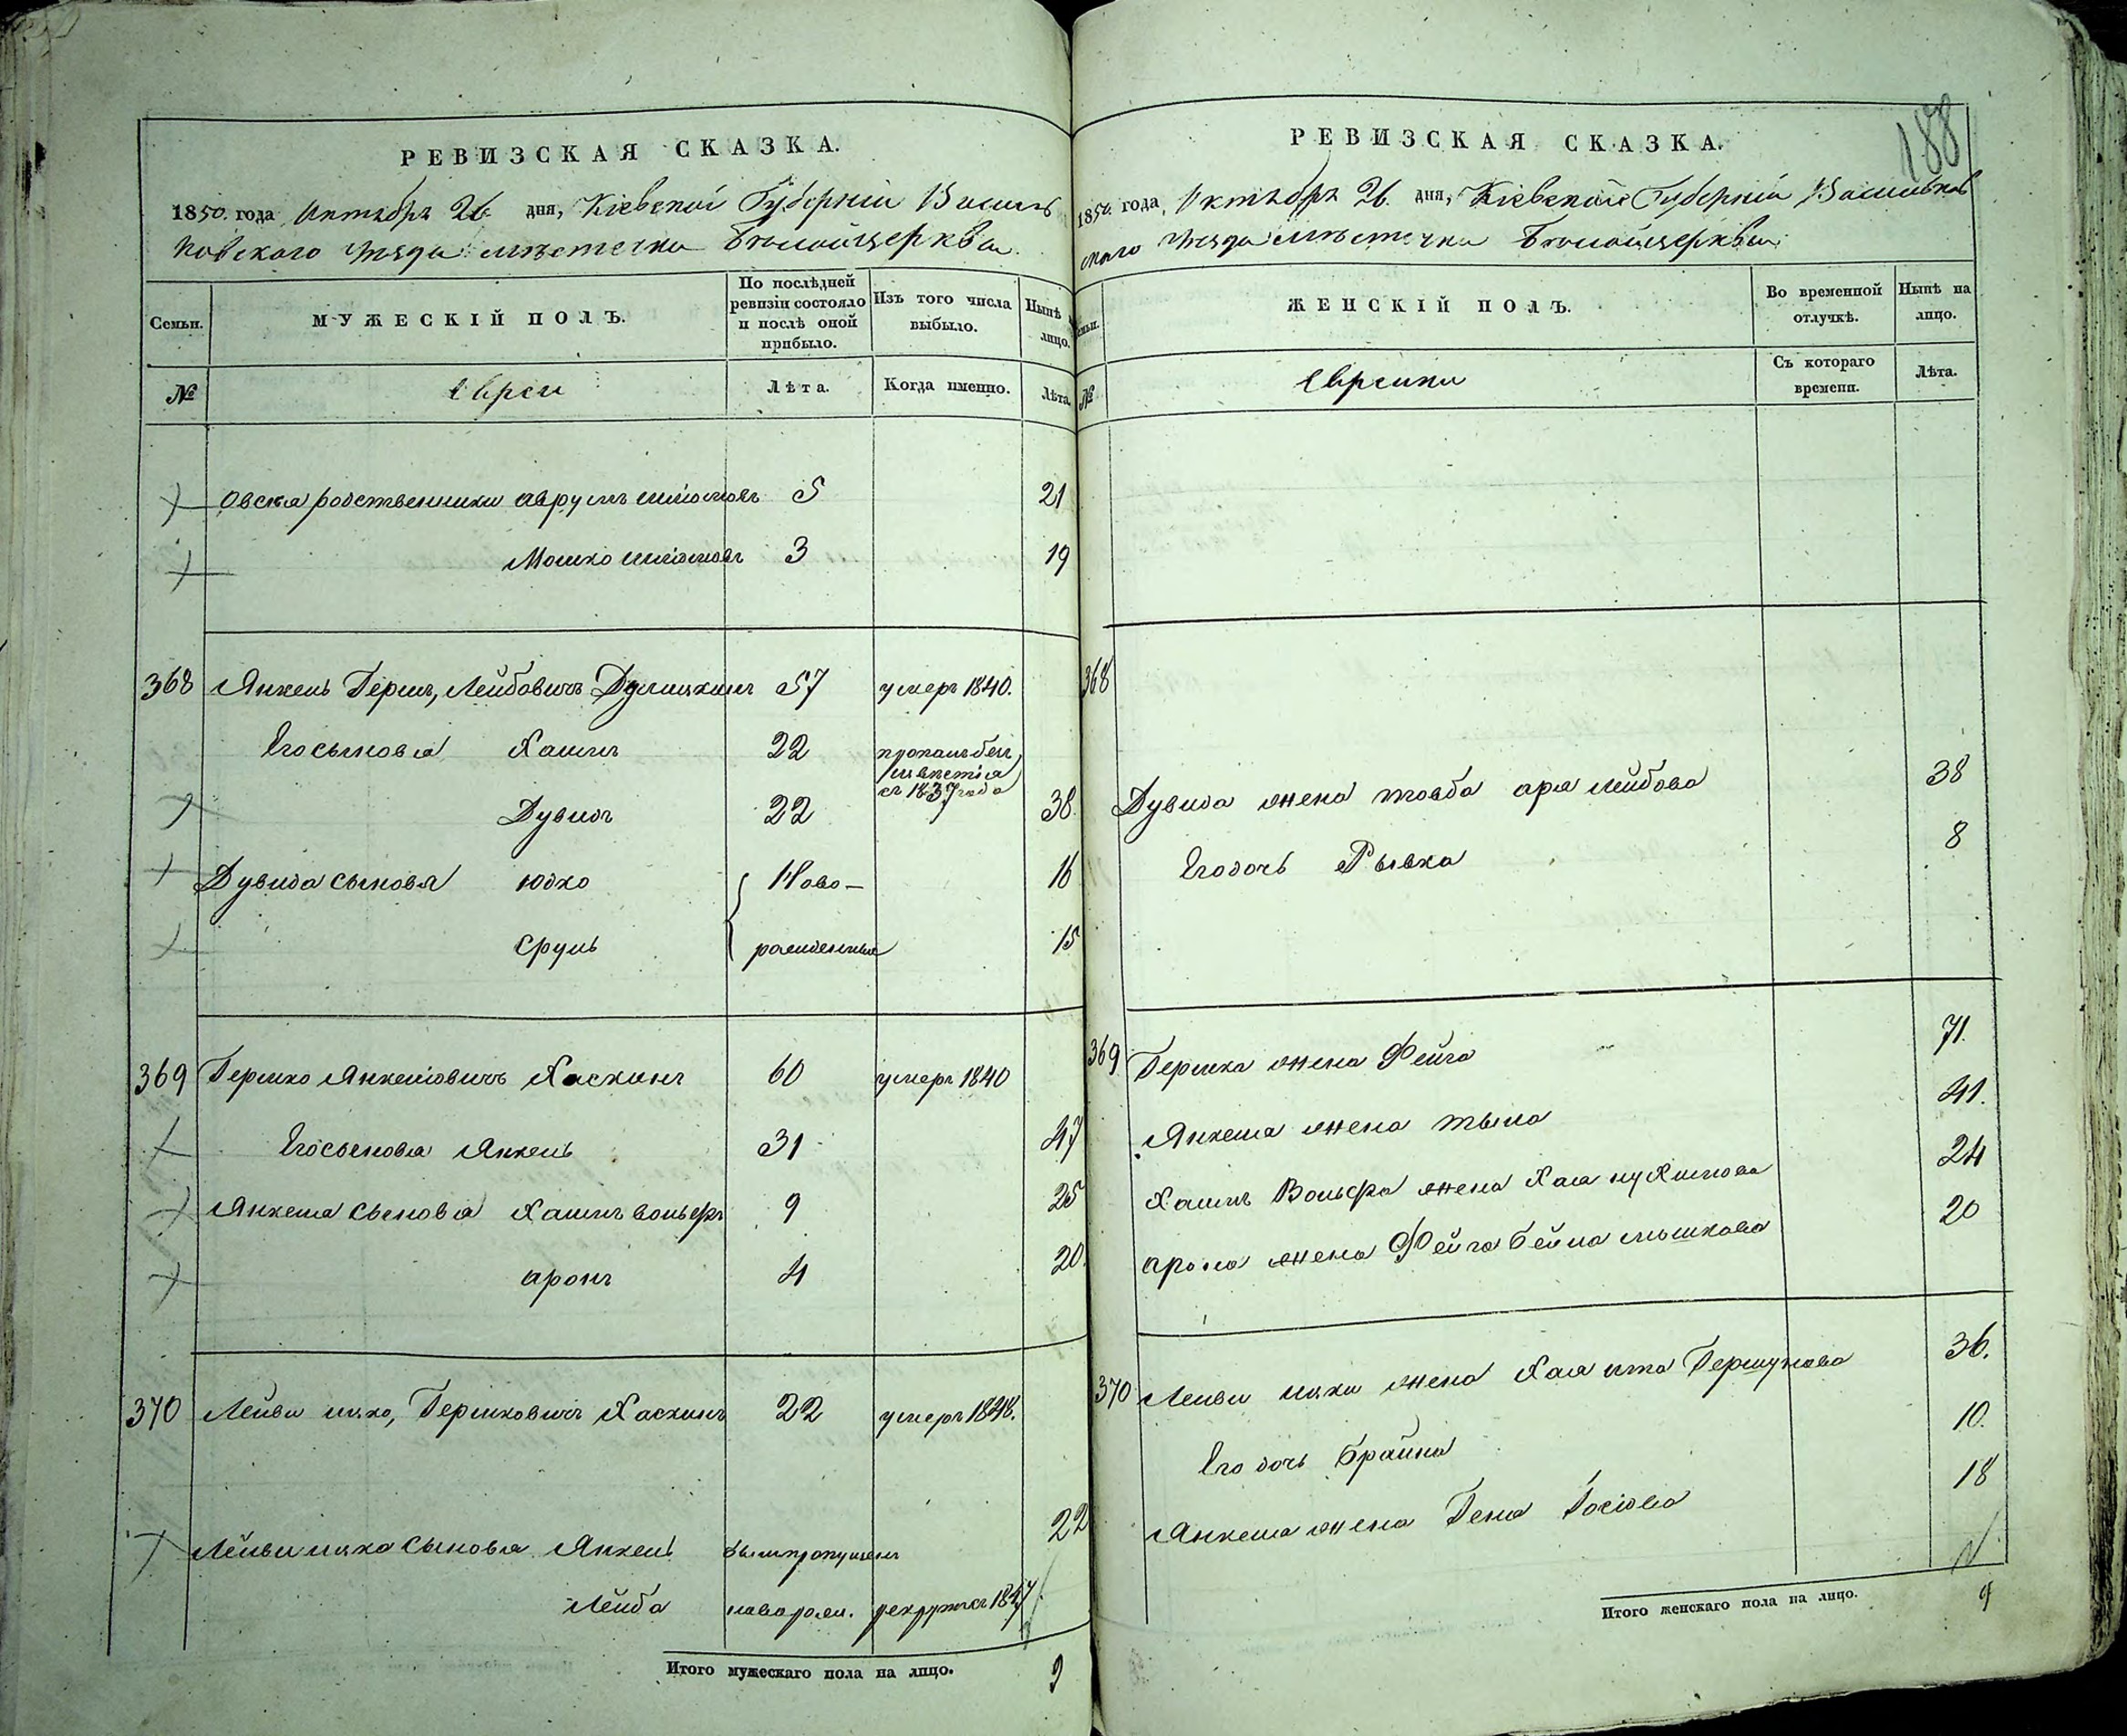 РЕВИЗСКАЯ СКАЗКА.
1850. года Октября 26. дня, Кіевской Губерніи Василь
ковского Уезда местечка Белойцеркви.
Семьи.
МУЖЕСКІЙ ПОЛЪ.
По послѣдней ревизіи состояло и послѣ оной прибыло.
Изъ того числа выбыло.
Нынѣ лицо.
№
Евреи
Лѣта.
Когда именно.
Лѣта.
родственники Аврумъ 5 21
Мошко 3 19
368 Янкель Герш, Лейбовичъ 57 умеръ 1840.
Его сыновья Хаимъ 22 пропалъ без известія съ 1837 года
Дувидъ 22 38.
Дувида сыновья Юдко Ново- 16
Сруль рожденные 15
369 Гершко Янкелiовичъ Хаскинъ 60 умеръ 1840
Его сыновья Янкель 31 47
Янкеля сыновья Хаимъ Вольфъ 9 25
Аронъ 4 20.
370 Гершковичъ Хаскинъ 22 умеръ 1848.
сыновья Янкель былъ пропущенъ 22
Лейба новорож. 1847
Итого мужескаго пола на лицо. 9
188
РЕВИЗСКАЯ СКАЗКА.
1850. года, Октября 26. дня, Кіевской Губерніи Васильков
ского Уезда местечка Белойцеркви.
Семьи.
ЖЕНСКІЙ ПОЛЪ.
Во временной отлучкѣ.
Нынѣ на лицо.
№
Еврейки
Съ котораго времени.
Лѣта.
368
Дувида жена Товба Ария Лейбова 38
Его дочь Рывка 8
369 Гершка жена Фейга 71.
Янкеля жена 41.
Хаимъ Вольфа жена Хая 24
Арона жена Фейга Бейла Мышкова 20
370 жена Хая Ита Гершунова 36.
Его дочь Брайна 10.
Янкеля жена Гена 18
Итого женскаго пола на лицо. 9